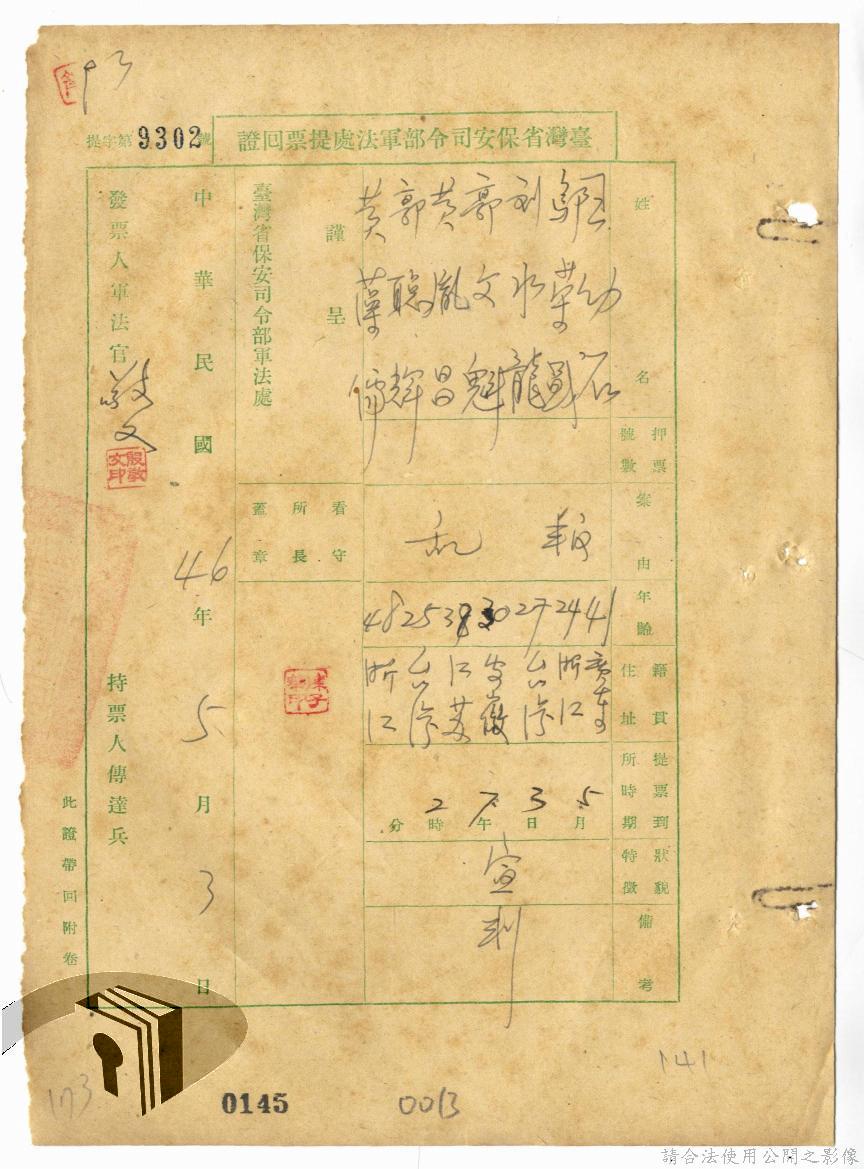 臺灣省保安司令部軍法處提票回證
提字第9302號
姓名
王幼石
鄔荣圖
刘水龍
郭文魁
黄胤昌
郭聪輝
黄蕴儒
押票號數
案由
叛乱
年齡
41
24
27
30
38
25
48
籍貫住址
廣東
浙江
台湾
安徽
江苏
台湾
浙江
提票到所時期
5月3日下午2時 分
狀貌特徵
備考
宣判
謹呈
臺灣省保安司令部軍法處
看守所長蓋章
中華民國46年5月3日
發票人軍法官
敬文
殷敬文印
持票人傳達兵
此證帶回附卷
173
0145
0013
141
請合法使用公開之影像